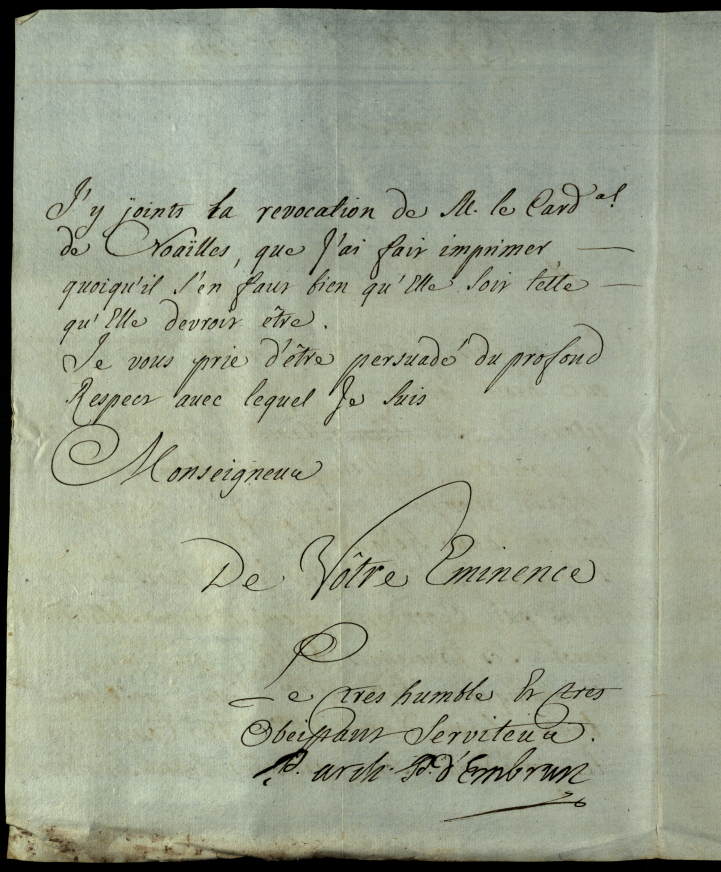 J'y joints la revocation de M. le Card.al
de Noaïlles, que J'ai fait imprimer —
quoiqu'il s'en faut bien qu'Elle soit telle —
qu'Elle devroit être.
Je vous prie d'être persuadé du profond
Respect avec lequel Je suis
Monseigneur
De Vôtre Eminence
Le tres humble Et tres
Obeissant Serviteur.
arch. Pr. d'Embrun